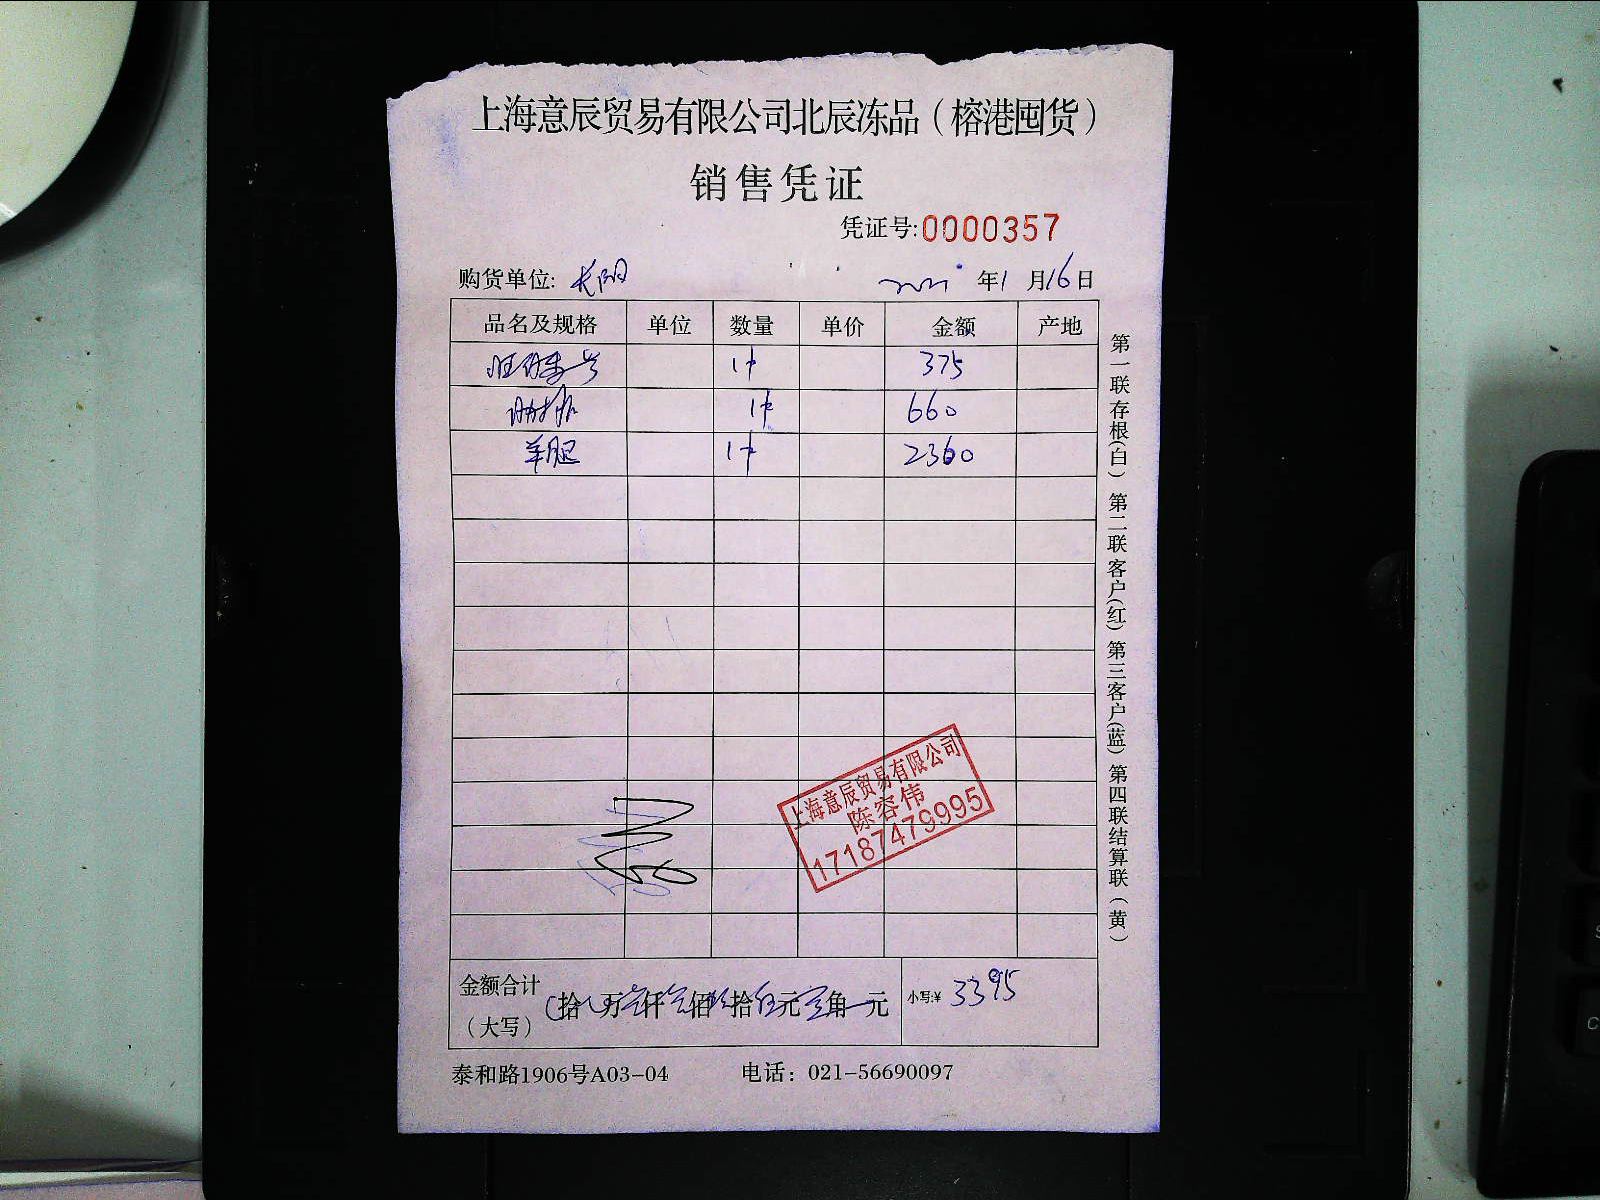 上海意辰贸易有限公司北辰冻品（榕港囤货）
销售凭证
凭证号:0000357
购货单位: 长阳 2021 年 1 月 16 日
品名及规格 单位 数量 单价 金额 产地
1件 375
1件 660
羊腿 1件 2360
上海意辰贸易有限公司
陈容伟
17187479995
金额合计（大写） 拾 万 仟 佰 拾 伍 元 角 元 小写:¥ 3395
泰和路1906号A03-04 电话：021-56690097
第一联存根(白) 第二联客户(红) 第三客户(蓝) 第四联结算联（黄）